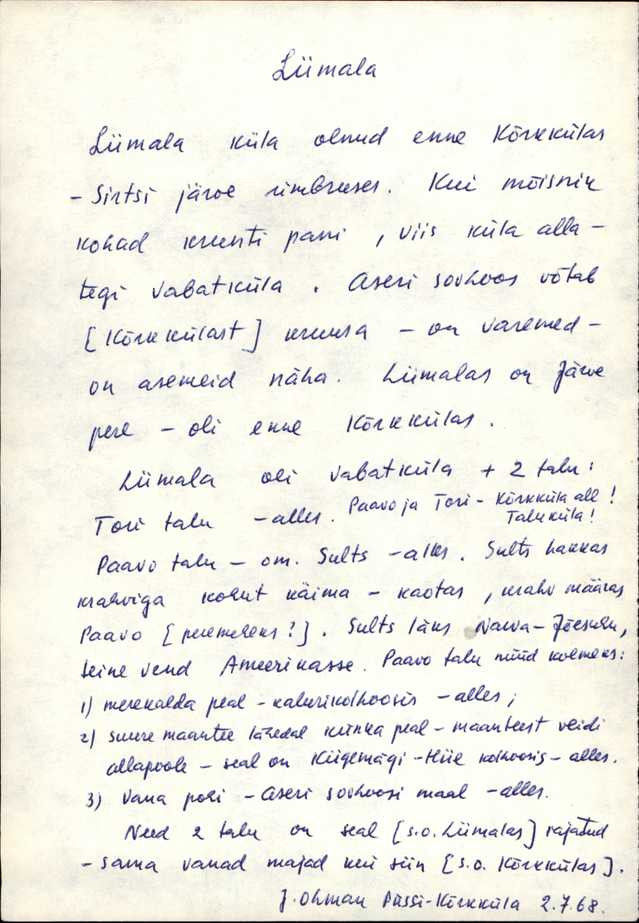 Liimala
Liimala küla olnud enne Kõrkkülas
- Sirtsi järve ümbruses. Kui mõisnik
kohad krunti pani, viis küla alla -
tegi vabatküla. Aseri sovhoos võtab
[Kõrkkülast] kruusa - on varemed -
on asemeid näha. Liimalas on Järve
pere - oli enne Kõrkkülas.
Liimala oli vabatküla + 2 talu:
Tori talu - alles. Paavo ja Tori - Kõrkküla all!
Taluküla!
Paavo talu - om. Sults - alles. Sults hakkas
krahviga kohut käima - kaotas, krahv määras
Paavo [peremeheks?]. Sults läks Narva-Jõesuhu,
teine vend Ameerikasse. Paavo talu nüüd kolmeks:
1) merekalda peal - kalurikolhoosis - alles;
2) suure maantee lähedal künka peal - maanteest veidi
allapoole - seal on Kiigemägi - Hiie kolhoosis - alles.
3) vana põli - Aseri sovhoosi maal - alles.
Need 2 talu on seal [s.o. Liimalas] rajatud
- sama vanad majad kui siin [s.o. Kõrkkülas].
J. Ohman Püssi-Kõrkküla 2.7.68.